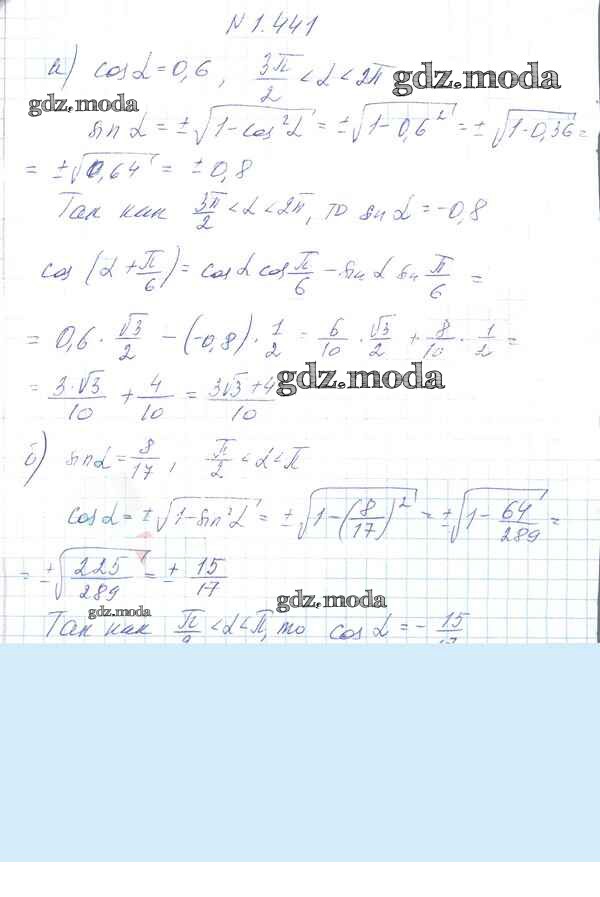 N 1.441
а) cos α = 0,6 , 3π/2 < α < 2π gdz.moda
gdz.moda
sin α = ±√(1-cos²α) = ±√(1-0,6²) = ±√(1-0,36) =
= ±√0,64 = ±0,8
Так как 3π/2 < α < 2π, то sin α = -0,8
cos (α + π/6) = cos α cos π/6 - sin α sin π/6 =
= 0,6 · √3/2 - (-0,8) · 1/2 = 6/10 · √3/2 + 8/10 · 1/2 =
= 3·√3/10 + 4/10 = 3√3+4/10 gdz.moda
б) sin α = 8/17 , π/2 < α < π
cos α = ±√(1-sin²α) = ±√(1-(8/17)²) = ±√(1-64/289) =
= ±√(225/289) = ± 15/17
gdz.moda gdz.moda
Так как π/2 < α < π, то cos α = - 15/17